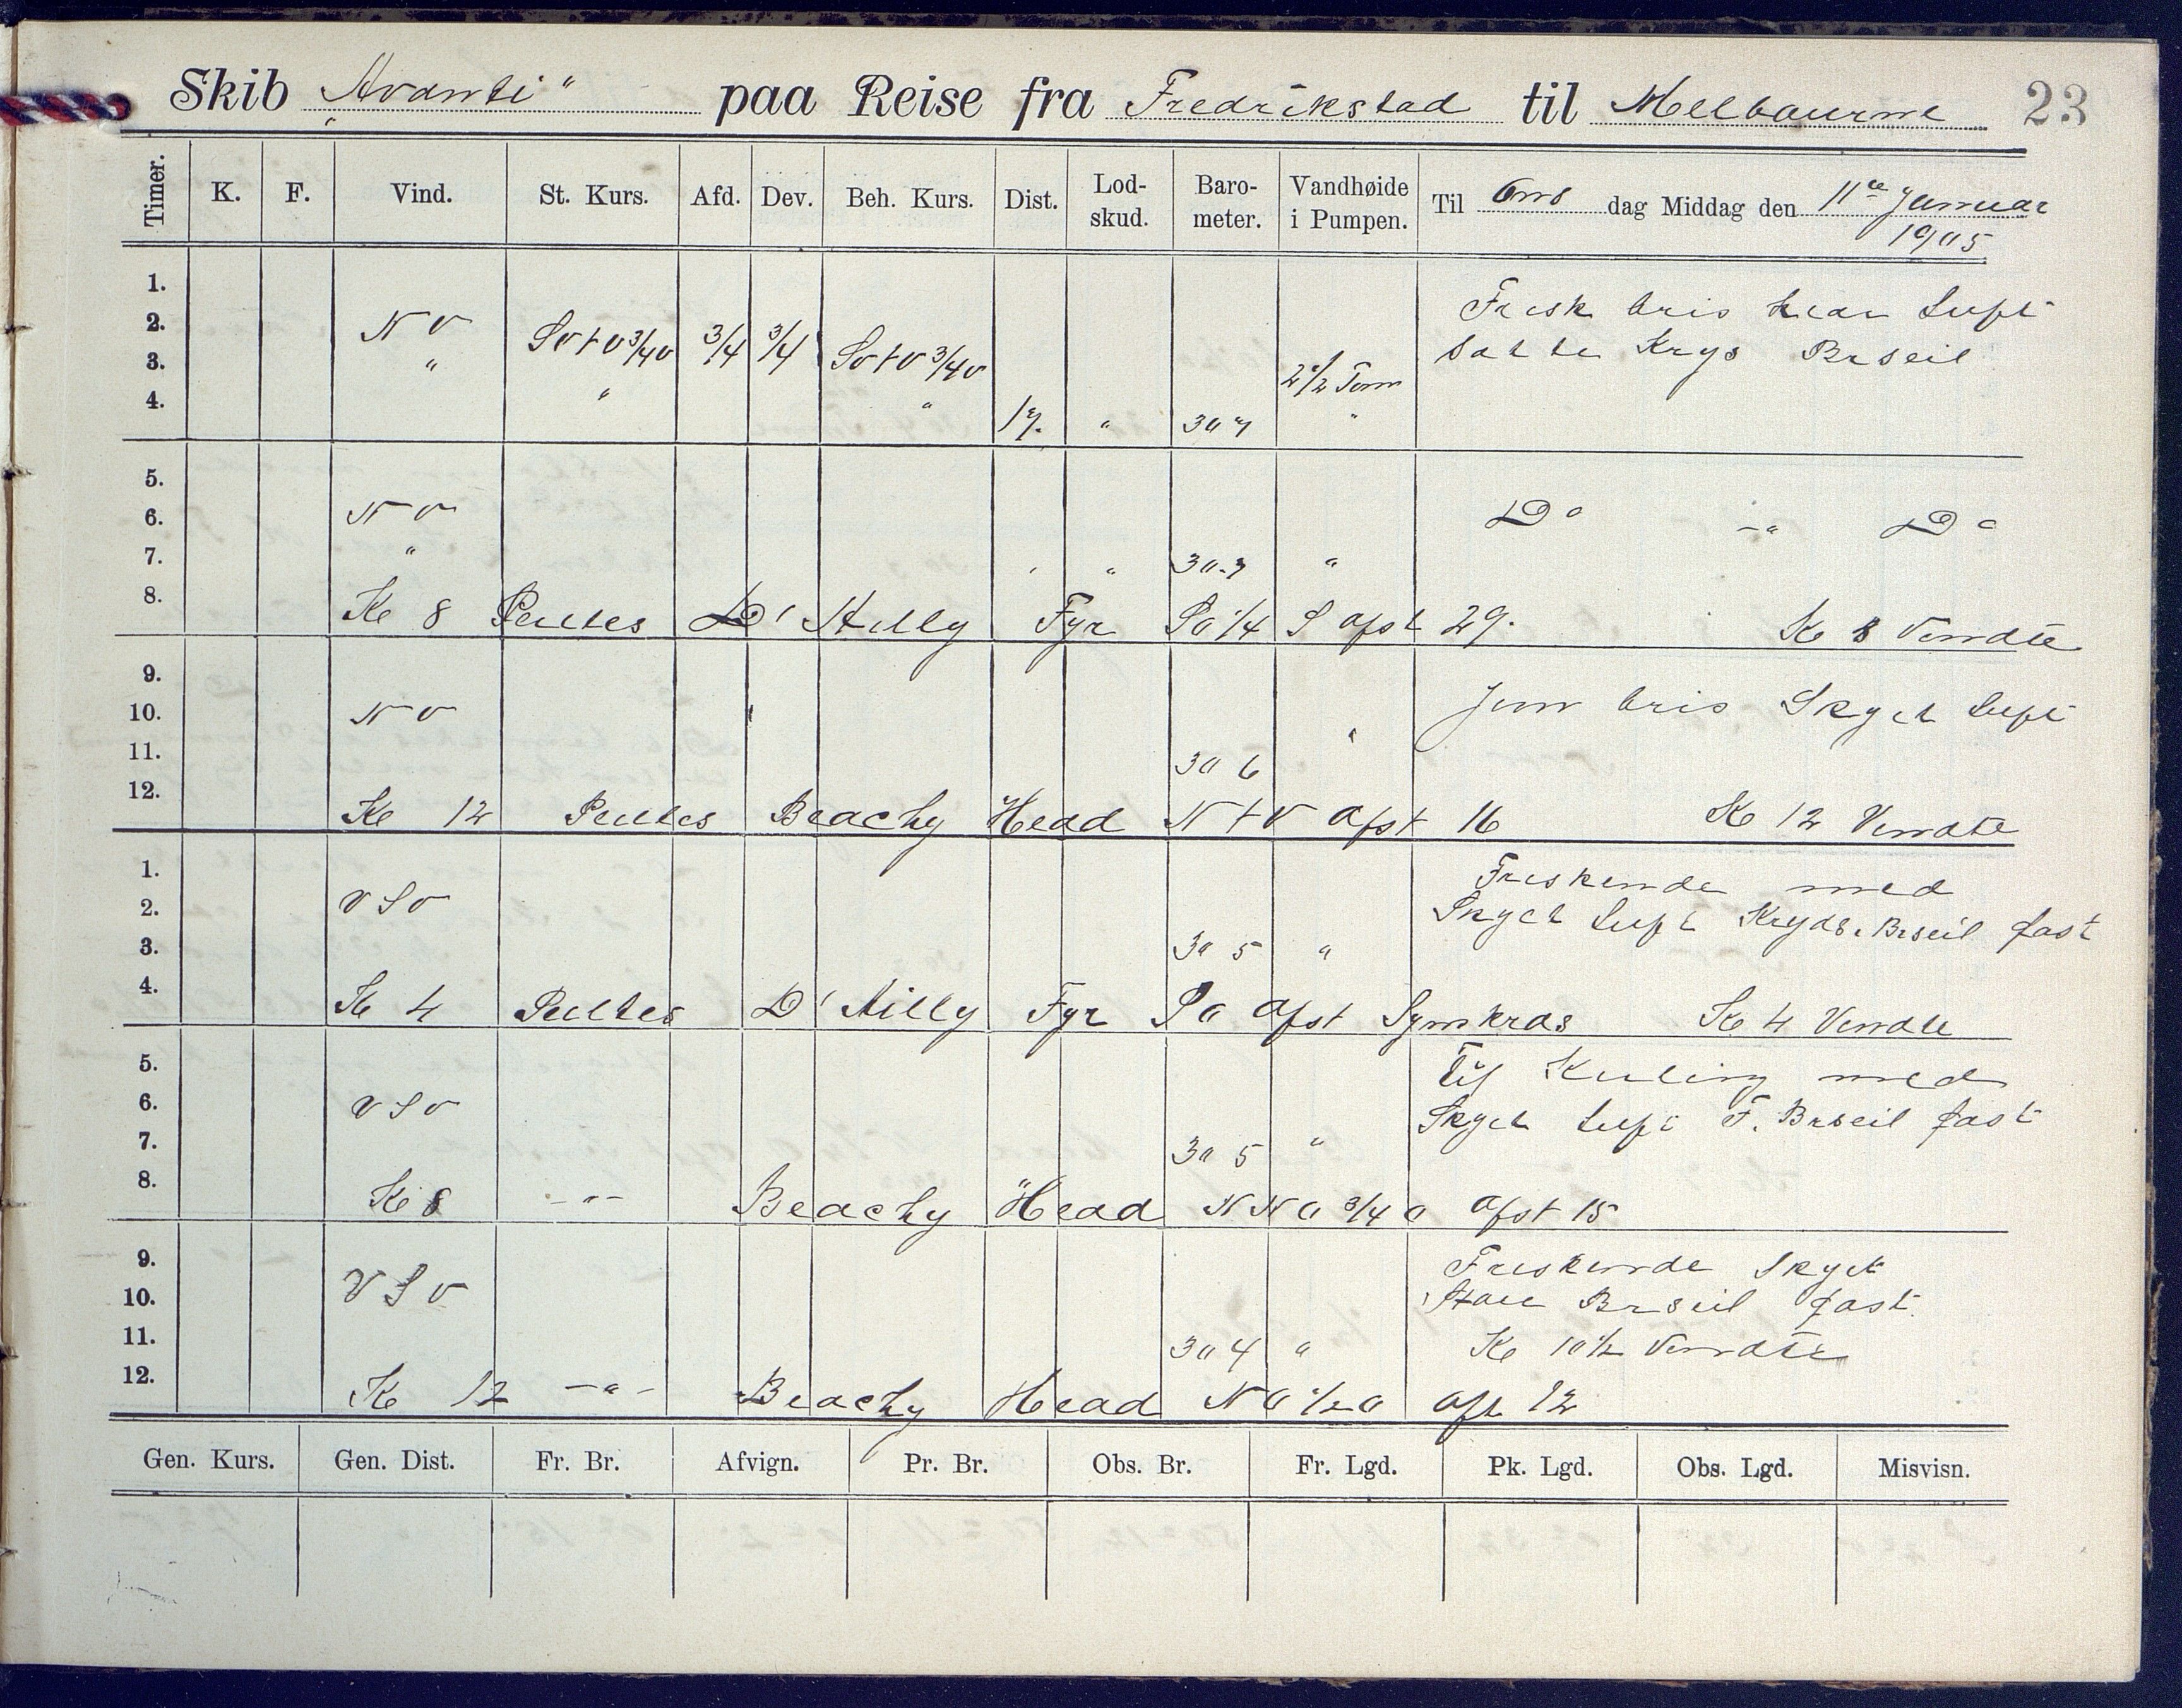 Skib „Avanti“ paa Reise fra Fredrikstad til Melbourne 23
Timer. K. F. Vind. St. Kurs. Afd. Dev. Beh. Kurs. Dist. Lod-skud. Baro-meter. Vandhøide i Pumpen. Til Ons dag Middag den 11te Januar 1905
1. Frisk bris klar Luft
2. NV SVtV 3/4V 3/4 3/4 SVtV 3/4V satte Krys Brseil
3. " " " 2 1/2 Tom
4. 17. " 30 7 "
5.
6. NV Do -" Do
7. " " " 30.7 "
8. Kl 8 Peiltes D' Ailly Fyr SO 1/4 S Afst 29. Kl 8 Vendte
9. Jevn bris Skyet Luft
10. NV "
11. 30 6
12. Kl 12 Peiltes Beachy Head NtV Afst 16 Kl 12 Vendte
1. Friskende med
2. VSV Skyet Luft Kryds. Brseil fast
3. 30 5 "
4. Kl 4 Peiltes D' Ailly Fyr SO Afst Synskrds Kl 4 Vendte
5. Kuling med
6. VSV Skyet Luft F. Brseil fast
7. 30 5 "
8. Kl 8 -"- Beachy Head NNO 3/4 O Afst 15
9. Friskende Skyet
10. VSV Store Brseil fast.
11. 30 4 " Kl 10 1/2 Vendte
12. Kl 12 -"- Beachy Head NO 1/2 O Afst 12
Gen. Kurs. Gen. Dist. Fr. Br. Afvign. Pr. Br. Obs. Br. Fr. Lgd. Pk. Lgd. Obs. Lgd. Misvisn.